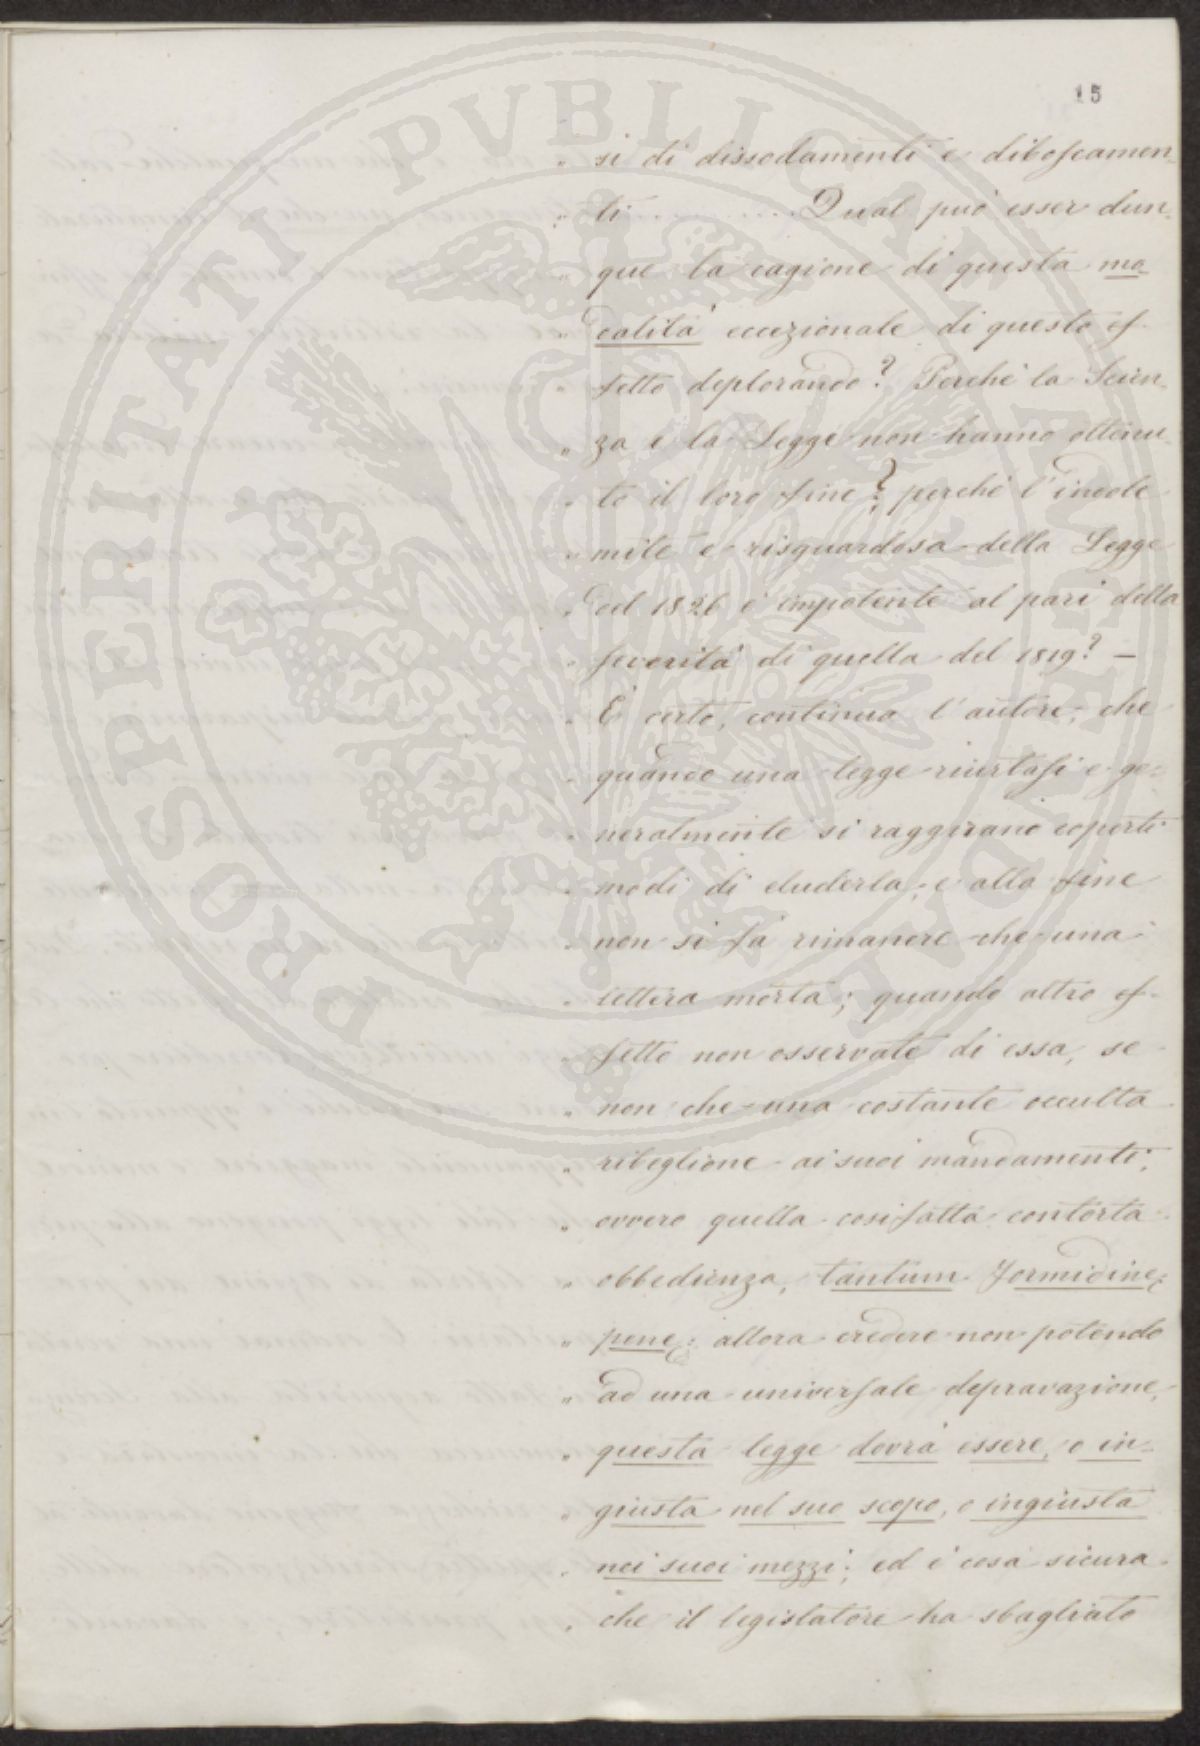 15
PROSPERITATI PVBLICAE AVGENDAE
" si di dissodamenti e diboscamen-
" ti ............ Qual può esser dun-
" que la cagione di questa mo
" dalità eccezionale di questo ef-
" fetto deplorando? Perchè la Scien-
" za e la Legge non hanno ottenu-
" to il loro fine? perchè l'indole
" mite e risguardosa della Legge
" del 1826 è impotente al pari della
" severità di quella del 1819? —
" È certo, continua l'autore, che
" quando una legge riurtasi e ge=
" neralmente si raggirano coperti
" modi di eluderla, e alla fine
" non si fa rimanere che una
" lettera morta; quando altro ef-
" fetto non osservate di essa, se
" non che una costante occulta
" ribeglione ai suoi mandamenti,
" ovvero quella cosifatta contorta
" obbedienza, tantum formidine
" pene: allora credere non potendo
" ad una universale depravazione,
" questa legge dovrà essere, o in-
" giusta nel suo scopo, o ingiusta
" nei suoi mezzi; ed è cosa sicura
" che il legislatore ha sbagliato